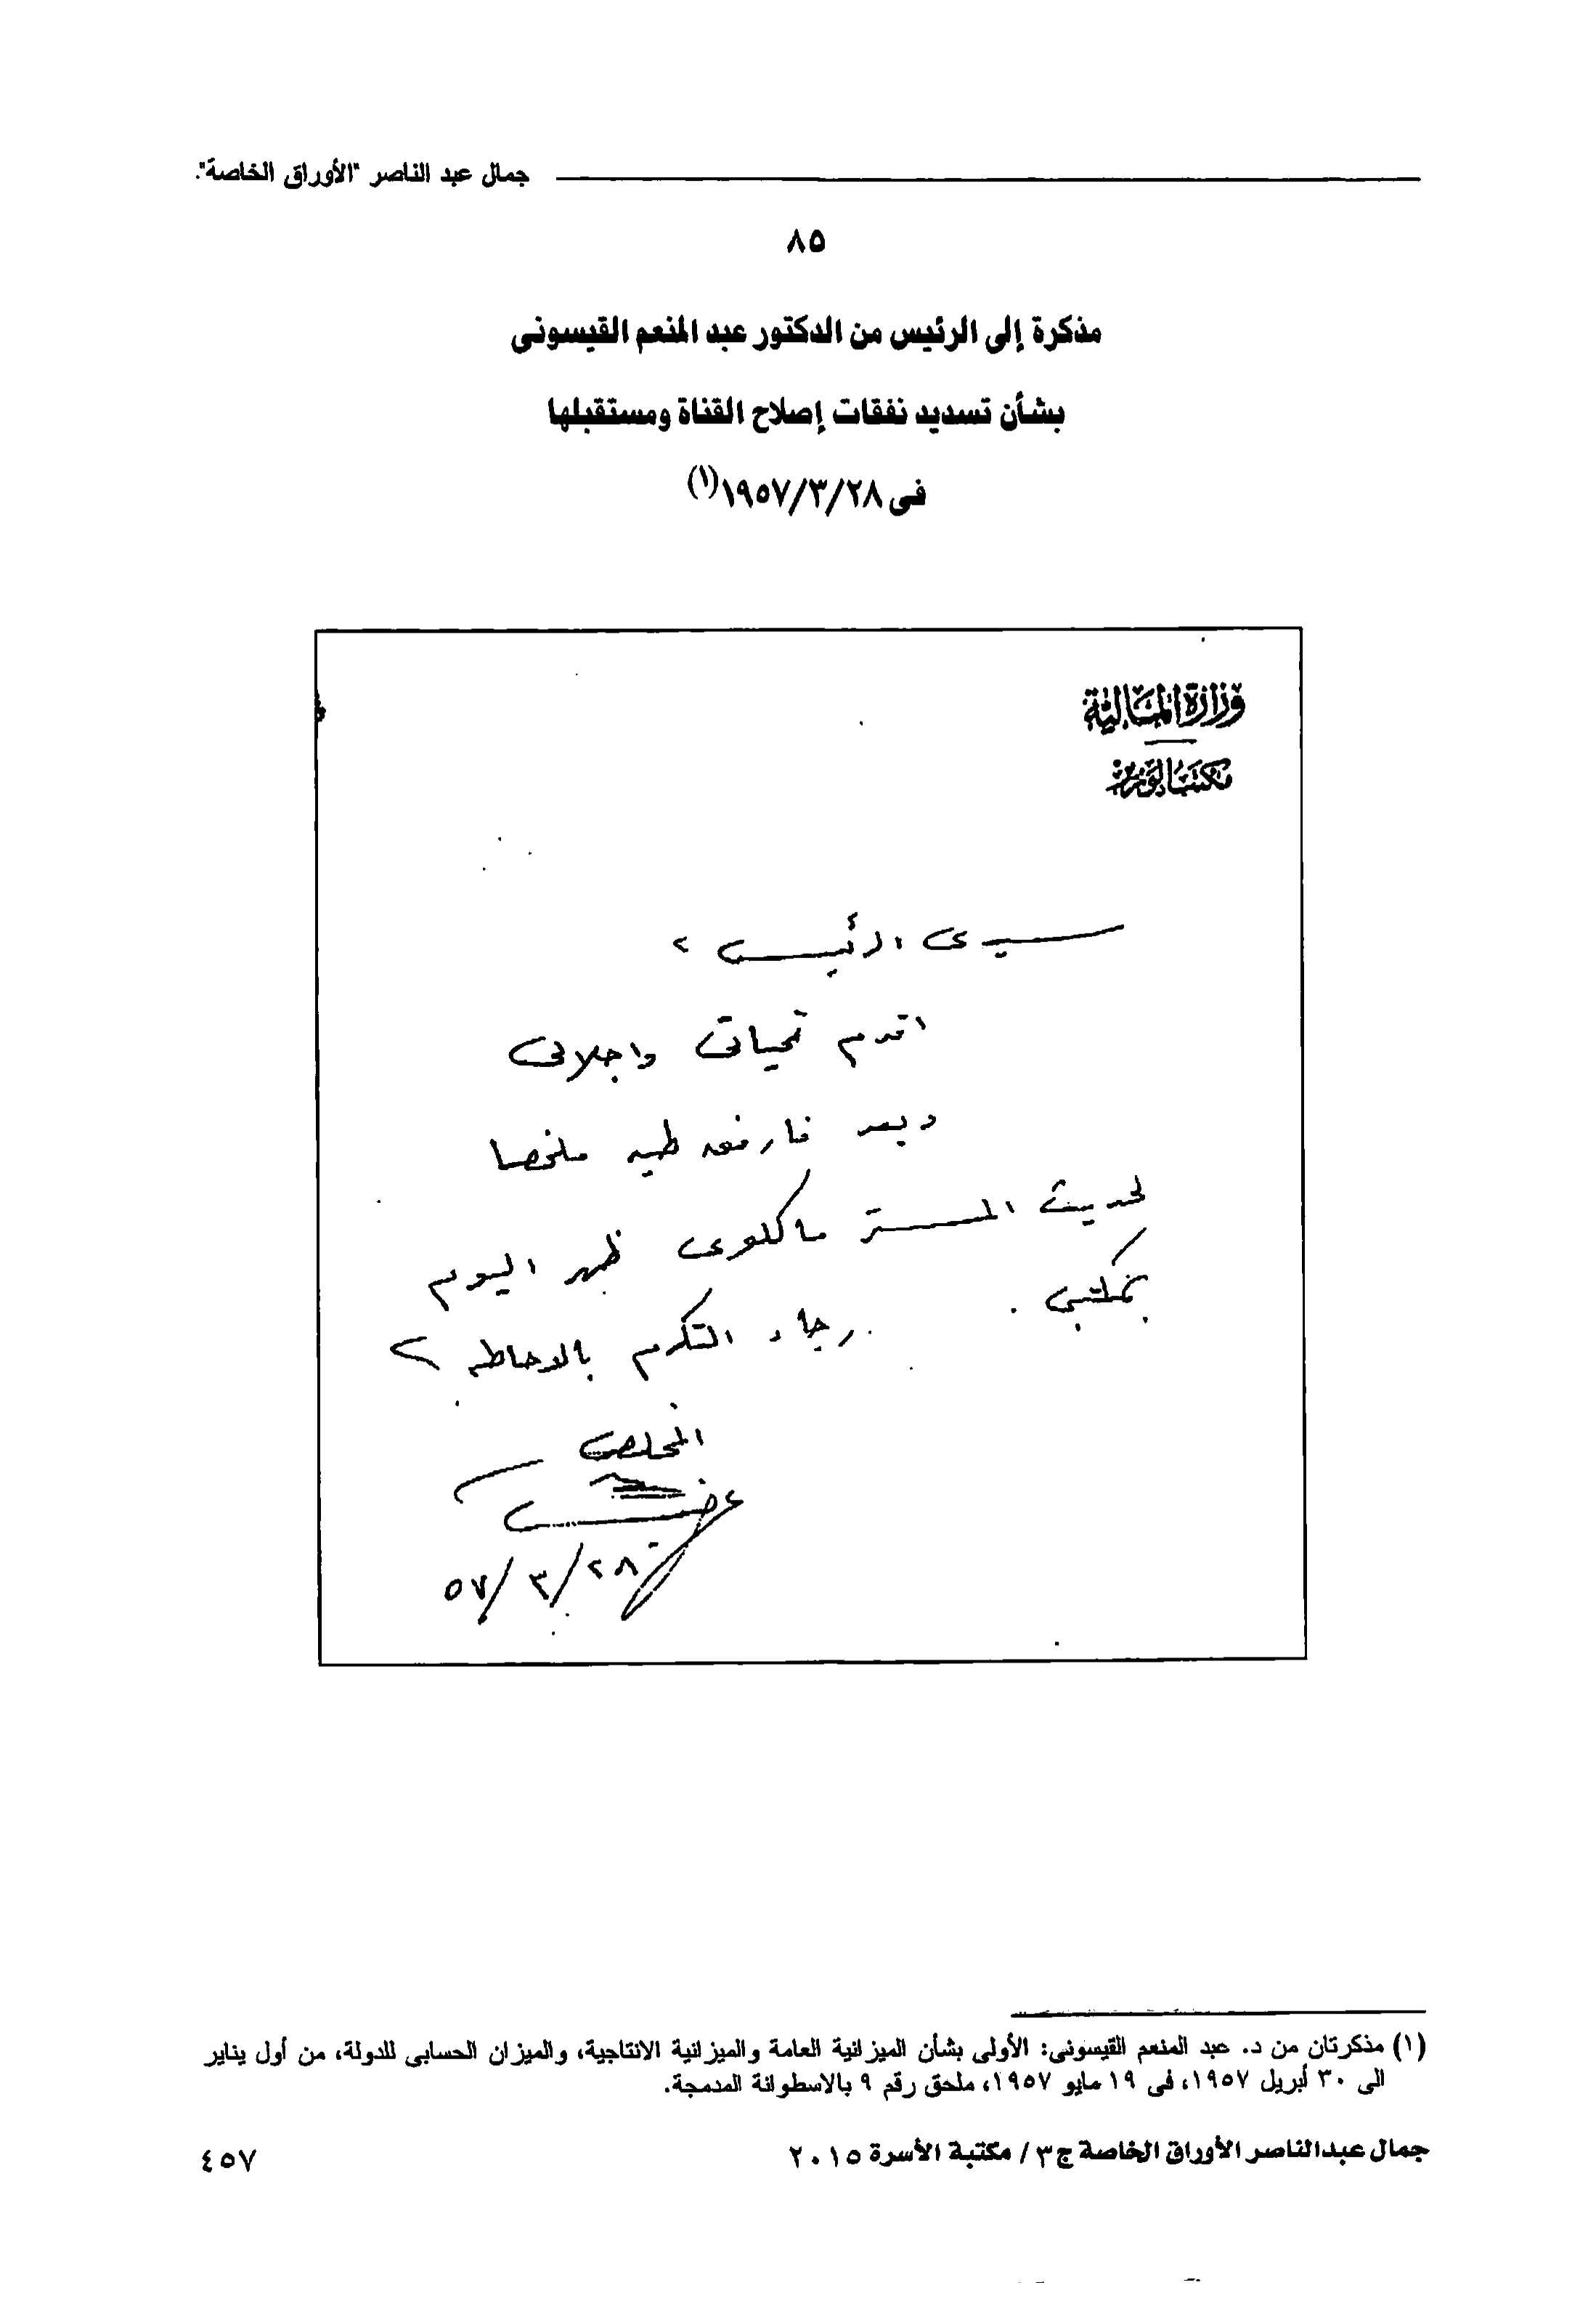 جمال عبد الناصر "الأوراق الخاصة".
٨٥
مذكرة إلى الرئيس من الدكتور عبد المنعم القيسونى
بشأن تسديد نفقات إصلاح القناة ومستقبلها
فى ١٩٥٧/٣/٢٨(١)
وزارة المالية
مكتب الوزير
سيدى الرئيس ،
اقدم تحياتى واجلالى
وبعد فارفق طيه ملخصا
لحديث المستر ماكلوى ظهر اليوم
بمكتبى . رجاء التكرم بالاحاطه
المخلص
٥٧/٣/٢٨
(١) مذكرتان من د. عبد المنعم القيسونى: الأولى بشأن الميزانية العامة والميزانية الانتاجية، والميزان الحسابى للدولة، من أول يناير
الى ٣٠ أبريل ١٩٥٧، فى ١٩ مايو ١٩٥٧، ملحق رقم ٩ بالاسطوانة المدمجة.
جمال عبدالناصر الأوراق الخاصة ج٣ / مكتبة الأسرة ٢٠١٥
٤٥٧